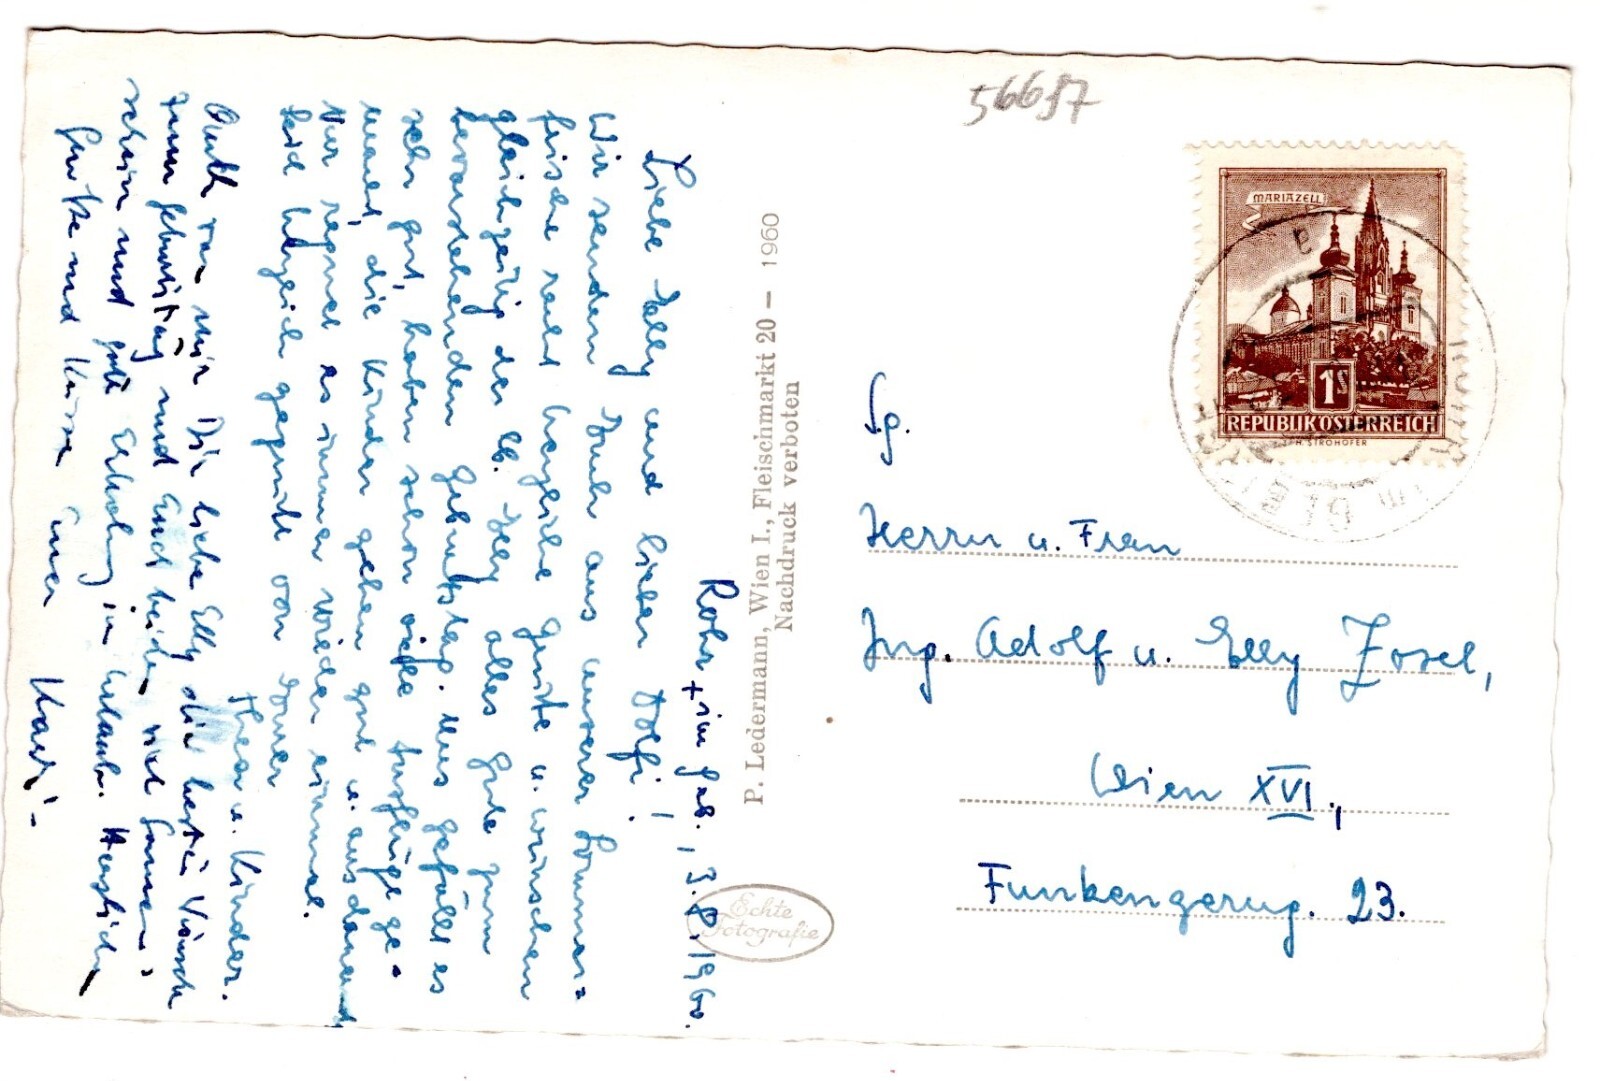 56687
Rohr im Geb., 3.8.1960.
Liebe Elly und lieber Dolfi!
Wir senden Euch aus unserer Sommer=
frische recht herzliche Grüße u. wünschen
gleichzeitig der lb. Elly alles Gute zum
bevorstehenden Geburtstag. Uns gefällt es
sehr gut, haben schon viele Ausflüge ge=
macht, die Kinder gehen gut u. ausdauernd
Nur regnet es immer wieder einmal.
Seid herzlich gegrüßt von Euer
Thea u. Kinder.
Auch von mir Dir liebe Elly die besten Wünsche
zum Geburtstag und Euch beiden viel Sonnen=
schein und gute Erholung im Urlaub. Herzliche
Grüße und Küsse Euer Karl!-
P. Ledermann, Wien I., Fleischmarkt 20 – 1960
Nachdruck verboten
Echte
Fotografie
MARIAZELL
1S
REPUBLIK ÖSTERREICH
H. STROHOFER
Sg.
Herrn u. Frau
Ing. Adolf u. Elly Zosel,
Wien XVI.,
Funkengerng. 23.